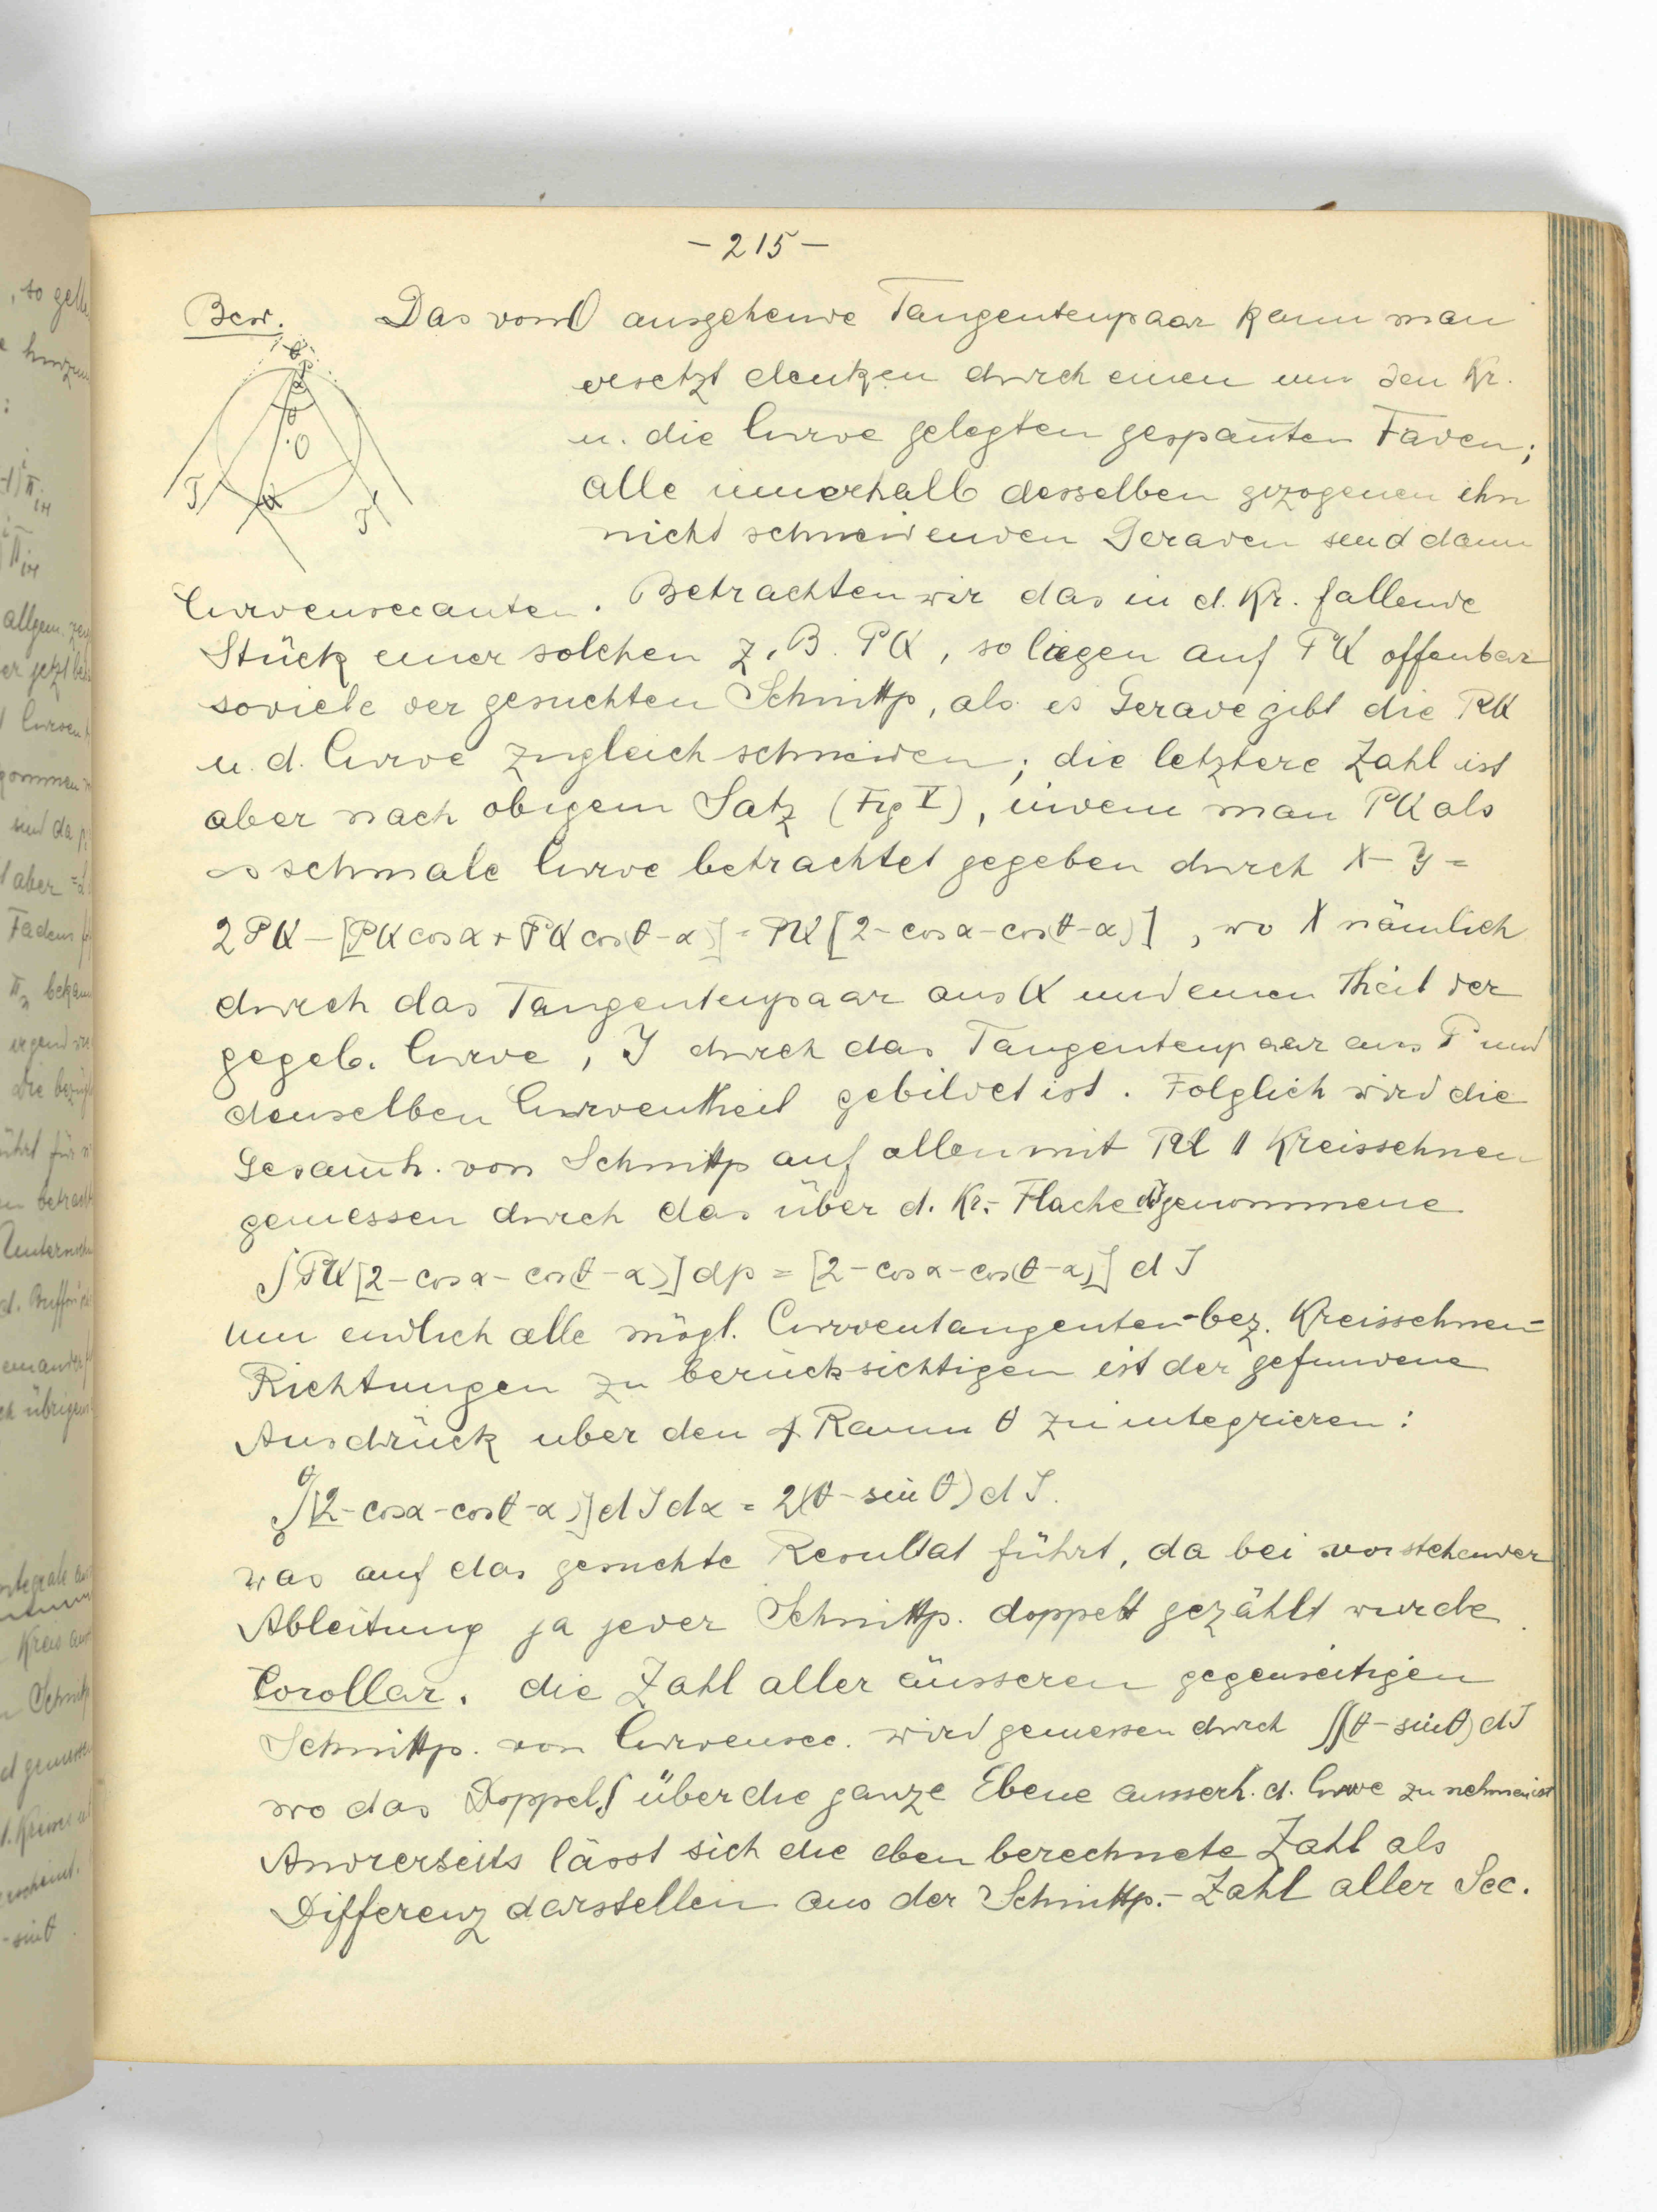 - 215 -
Bew. Das von O ausgehende Tangentenpaar kann man
ersetzt denken durch einen um den Kr.
u. die Curve gelegten gespan̄ten Faden;
alle innerhalb desselben gezogenen ihn
nicht schneidenden Geraden sind dann
Curvensecanten. Betrachten wir das in d. Kr. fallende
Stück einer solchen z. B. PQ, so liegen auf PQ offenbar
soviele der gesuchten Schnittp, als es Gerade gibt die PQ
u. d. Curve zugleich schneiden; die letztere Zahl ist
aber nach obigem Satz (Fig V), indem man PQ als
∞ schmale Curve betrachtet gegeben durch X - Y =
2PQ - [PQ cos α + PQ cos(θ - α)] = PQ [2 - cos α - cos(θ - α)], wo X nämlich
durch das Tangentenpaar aus Q und einen Theil der
gegeb. Curve, Y durch das Tangentenpaar aus P und
denselben Curventheil gebildet ist. Folglich wird die
Gesam̄th. von Schnittp auf allen mit PQ ∥ Kreissehnen
gemessen durch das über d. Kr.- Fläche dJ genommene
∫PQ[2 - cos α - cos(θ - α)] dp = [2 - cos α - cos(θ - α)] dJ
Um endlich alle mögl. Curventangenten- bez. Kreissehnen-
Richtungen zu berücksichtigen ist der gefundene
Ausdrück uber den ∢ Raum θ zu integrieren:
∫₀^θ[2 - cos α - cos(θ - α)] dJ dα = 2(θ - sin θ) dJ.
was auf das gesuchte Resultat führt, da bei vorstehender
Ableitung ja jeder Schnittp. doppelt gezählt wurde.
Corollar. die Zahl aller äusseren gegenseitigen
Schnittp. von Curvensec. wird gemessen durch ∬(θ - sin θ) dJ
wo das Doppel∫ über die ganze Ebene ausserh. d. Curve zu nehmen ist
Andrerseits lässt sich die eben berechnete Zahl als
Differenz darstellen aus der Schnittp.- Zahl aller Sec.